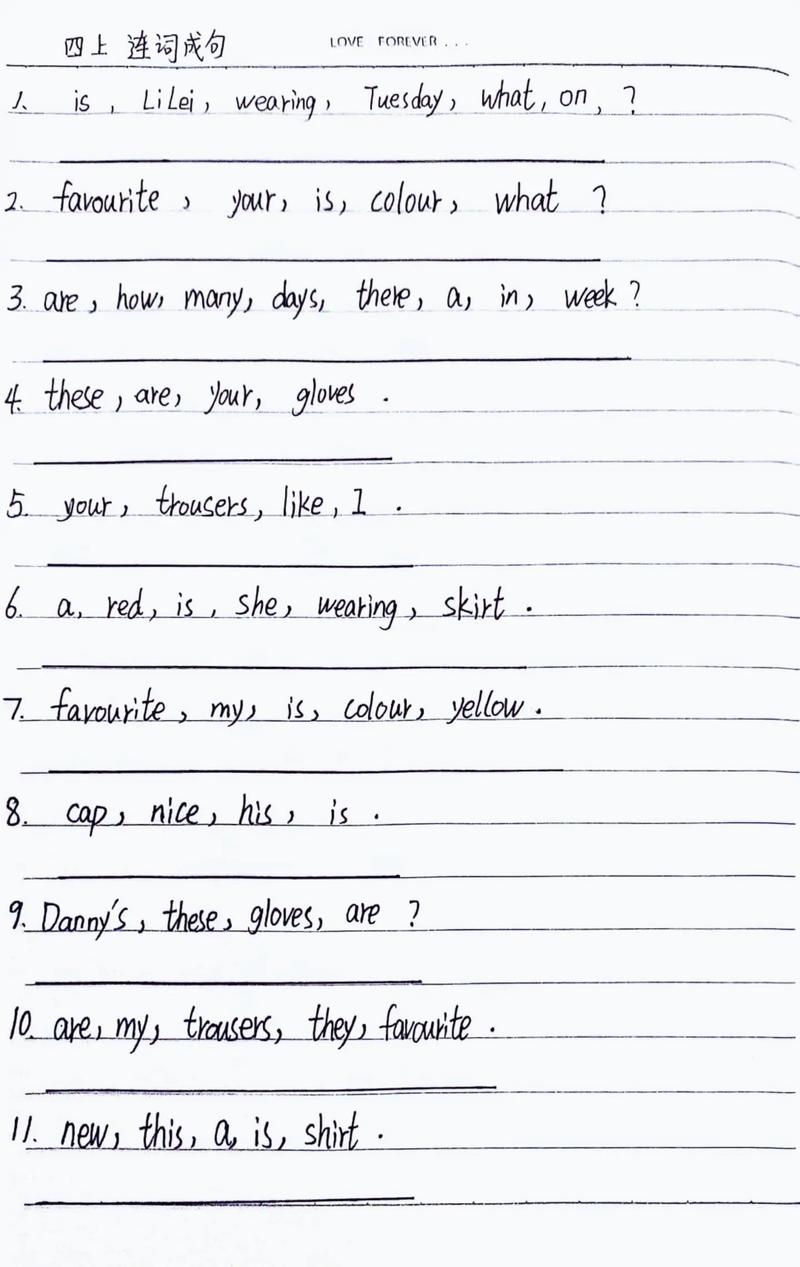 四上 连词成句 LOVE FOREVER...
1. is, Li Lei, wearing, Tuesday, what, on, ?
2. favourite, your, is, colour, what ?
3. are, how, many, days, there, a, in, week ?
4. these, are, your, gloves .
5. your, trousers, like, I .
6. a, red, is, she, wearing, skirt .
7. favourite, my, is, colour, yellow .
8. cap, nice, his, is .
9. Danny's, these, gloves, are ?
10. are, my, trousers, they, favourite .
11. new, this, a, is, shirt .